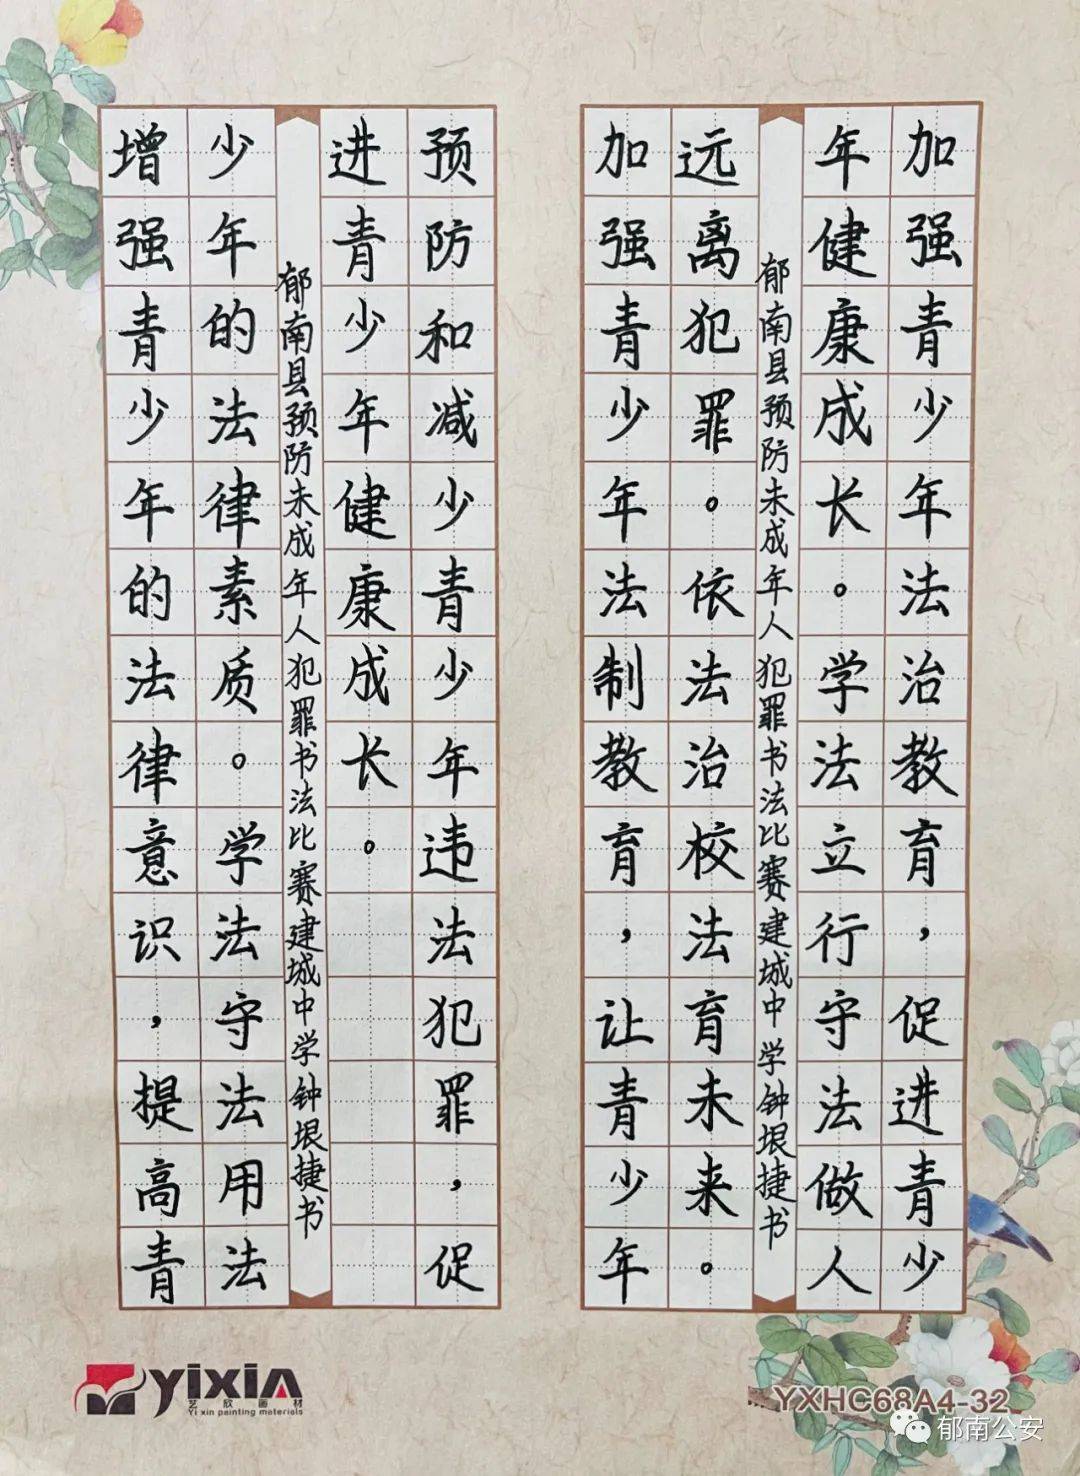 加强青少年法治教育，促进青少
年健康成长。学法立行守法做人
郁南县预防未成年人犯罪书法比赛建城中学钟垠捷书
加强青少年法制教育，让青少年
远离犯罪。依法治校法育未来。
预防和减少青少年违法犯罪，促
进青少年健康成长。
郁南县预防未成年人犯罪书法比赛建城中学钟垠捷书
增强青少年的法律意识，提高青
少年的法律素质。学法守法用法
yixin
艺欣画材
Yi xin painting materials
YXHC68A4-32
郁南公安